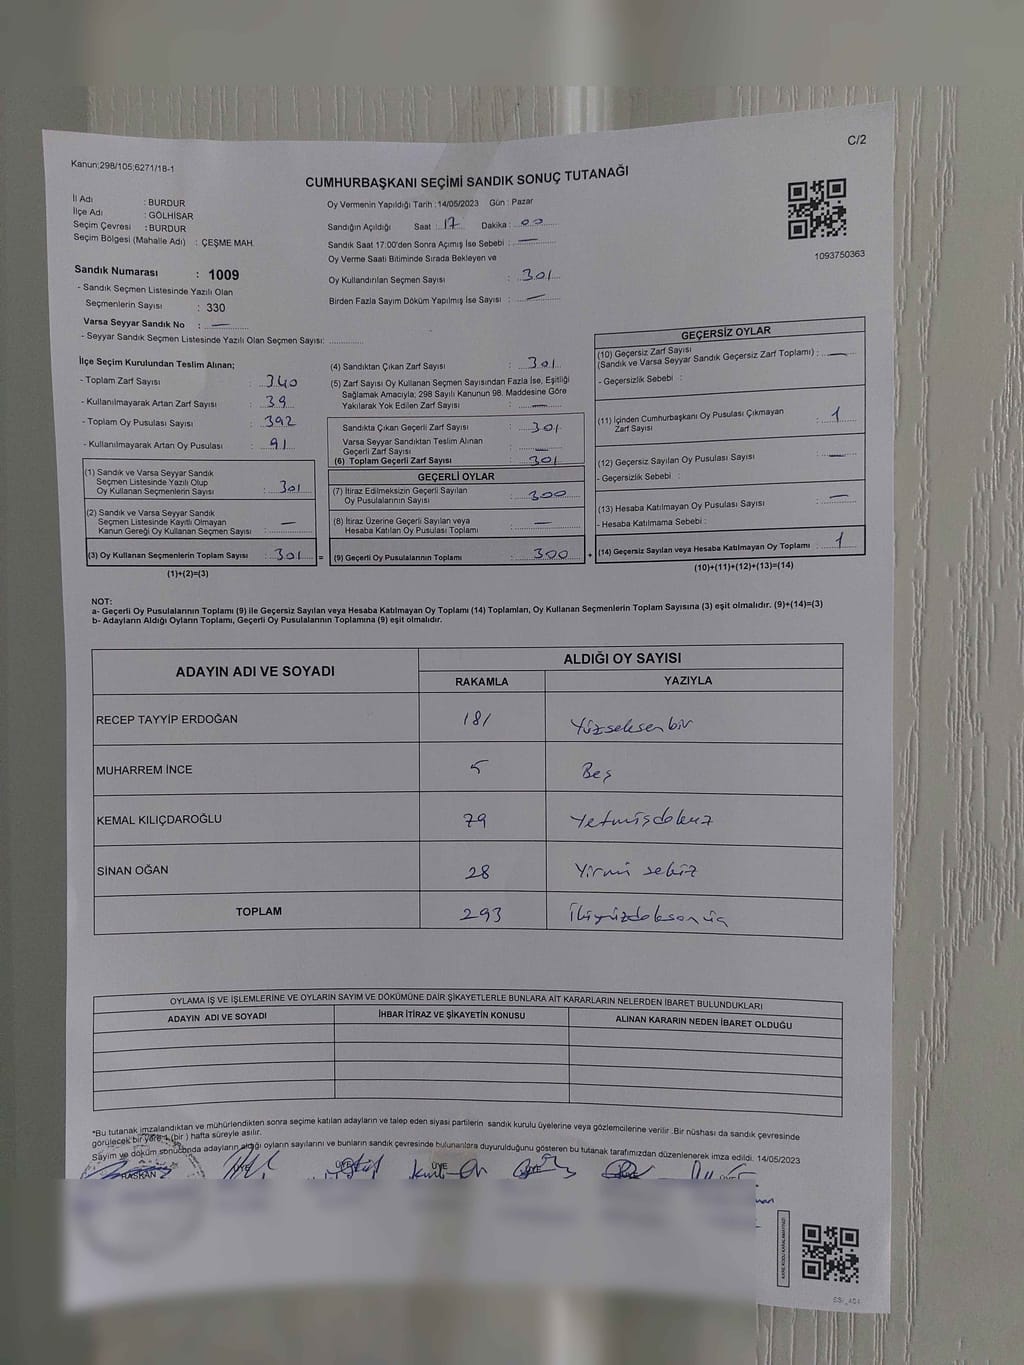 C/2
Kanun:298/105;6271/18-1
CUMHURBAŞKANI SEÇİMİ SANDIK SONUÇ TUTANAĞI
İl Adı : BURDUR
İlçe Adı : GÖLHİSAR
Seçim Çevresi : BURDUR
Seçim Bölgesi (Mahalle Adı) : ÇEŞME MAH.
Sandık Numarası : 1009
- Sandık Seçmen Listesinde Yazılı Olan
Seçmenlerin Sayısı : 330
Varsa Seyyar Sandık No : —
- Seyyar Sandık Seçmen Listesinde Yazılı Olan Seçmen Sayısı:
Oy Vermenin Yapıldığı Tarih :14/05/2023 Gün : Pazar
Sandığın Açıldığı Saat : 17 Dakika : 00
Sandık Saat 17:00'den Sonra Açımış İse Sebebi : —
Oy Verme Saati Bitiminde Sırada Bekleyen ve
Oy Kullandırılan Seçmen Sayısı : 301
Birden Fazla Sayım Döküm Yapılmış İse Sayısı : —
1093750363
İlçe Seçim Kurulundan Teslim Alınan;
- Toplam Zarf Sayısı : 340
- Kullanılmayarak Artan Zarf Sayısı : 39
- Toplam Oy Pusulası Sayısı : 392
- Kullanılmayarak Artan Oy Pusulası : 91
(1) Sandık ve Varsa Seyyar Sandık
Seçmen Listesinde Yazılı Olup
Oy Kullanan Seçmenlerin Sayısı : 301
(2) Sandık ve Varsa Seyyar Sandık
Seçmen Listesinde Kayıtlı Olmayan
Kanun Gereği Oy Kullanan Seçmen Sayısı : —
(3) Oy Kullanan Seçmenlerin Toplam Sayısı : 301 =
(1)+(2)=(3)
(4) Sandıktan Çıkan Zarf Sayısı : 301
(5) Zarf Sayısı Oy Kullanan Seçmen Sayısından Fazla İse, Eşitliği
Sağlamak Amacıyla; 298 Sayılı Kanunun 98. Maddesine Göre
Yakılarak Yok Edilen Zarf Sayısı : —
Sandıkta Çıkan Geçerli Zarf Sayısı : 301
Varsa Seyyar Sandıktan Teslim Alınan
Geçerli Zarf Sayısı : —
(6) Toplam Geçerli Zarf Sayısı : 301
GEÇERLİ OYLAR
(7) İtiraz Edilmeksizin Geçerli Sayılan
Oy Pusulalarının Sayısı : 300
(8) İtiraz Üzerine Geçerli Sayılan veya
Hesaba Katılan Oy Pusulası Toplamı : —
(9) Geçerli Oy Pusulalarının Toplamı : 300 +
GEÇERSİZ OYLAR
(10) Geçersiz Zarf Sayısı
(Sandık ve Varsa Seyyar Sandık Geçersiz Zarf Toplamı) : —
- Geçersizlik Sebebi :
(11) İçinden Cumhurbaşkanı Oy Pusulası Çıkmayan
Zarf Sayısı : 1
(12) Geçersiz Sayılan Oy Pusulası Sayısı : —
- Geçersizlik Sebebi :
(13) Hesaba Katılmayan Oy Pusulası Sayısı : —
- Hesaba Katılmama Sebebi :
(14) Geçersiz Sayılan veya Hesaba Katılmayan Oy Toplamı : 1
(10)+(11)+(12)+(13)=(14)
NOT:
a- Geçerli Oy Pusulalarının Toplamı (9) ile Geçersiz Sayılan veya Hesaba Katılmayan Oy Toplamı (14) Toplamları, Oy Kullanan Seçmenlerin Toplam Sayısına (3) eşit olmalıdır. (9)+(14)=(3)
b- Adayların Aldığı Oyların Toplamı, Geçerli Oy Pusulalarının Toplamına (9) eşit olmalıdır.
ADAYIN ADI VE SOYADI ALDIĞI OY SAYISI
RAKAMLA YAZIYLA
RECEP TAYYİP ERDOĞAN 181 Yüzseksenbir
MUHARREM İNCE 5 Beş
KEMAL KILIÇDAROĞLU 79 Yetmişdokuz
SİNAN OĞAN 28 Yirmi sekiz
TOPLAM 293 İkiyüzdoksanüç
OYLAMA İŞ VE İŞLEMLERİNE VE OYLARIN SAYIM VE DÖKÜMÜNE DAİR ŞİKAYETLERLE BUNLARA AİT KARARLARIN NELERDEN İBARET BULUNDUKLARI
ADAYIN ADI VE SOYADI İHBAR İTİRAZ VE ŞİKAYETİN KONUSU ALINAN KARARIN NEDEN İBARET OLDUĞU
*Bu tutanak imzalandıktan ve mühürlendikten sonra seçime katılan adayların ve talep eden siyasi partilerin sandık kurulu üyelerine veya gözlemcilerine verilir .Bir nüshası da sandık çevresinde
görülecek bir yere 1 (bir ) hafta süreyle asılır.
Sayım ve döküm sonucunda adayların aldığı oyların sayılarını ve bunların sandık çevresinde bulunanlara duyurulduğunu gösteren bu tutanak tarafımızdan düzenlenerek imza edildi. 14/05/2023
BAŞKAN ÜYE ÜYE ÜYE